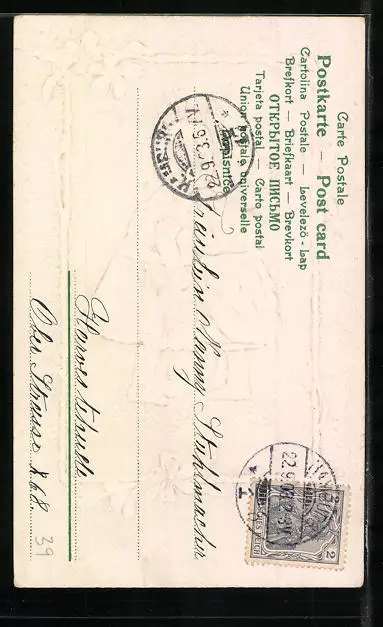 Carte Postale
Postkarte — Post card
Cartolina Postale — Levelező-Lap
Brefkort — Briefkaart — Brevkort
ОТКРЫТОЕ ПИСЬМО
Tarjeta postal Carto postal
Union postale universelle
22.9.0
DEUTSCHES REICH
2
2
1
Fräulein Nanny Stuhlmacher
Harvestehude
Ober Strasse 68.
39